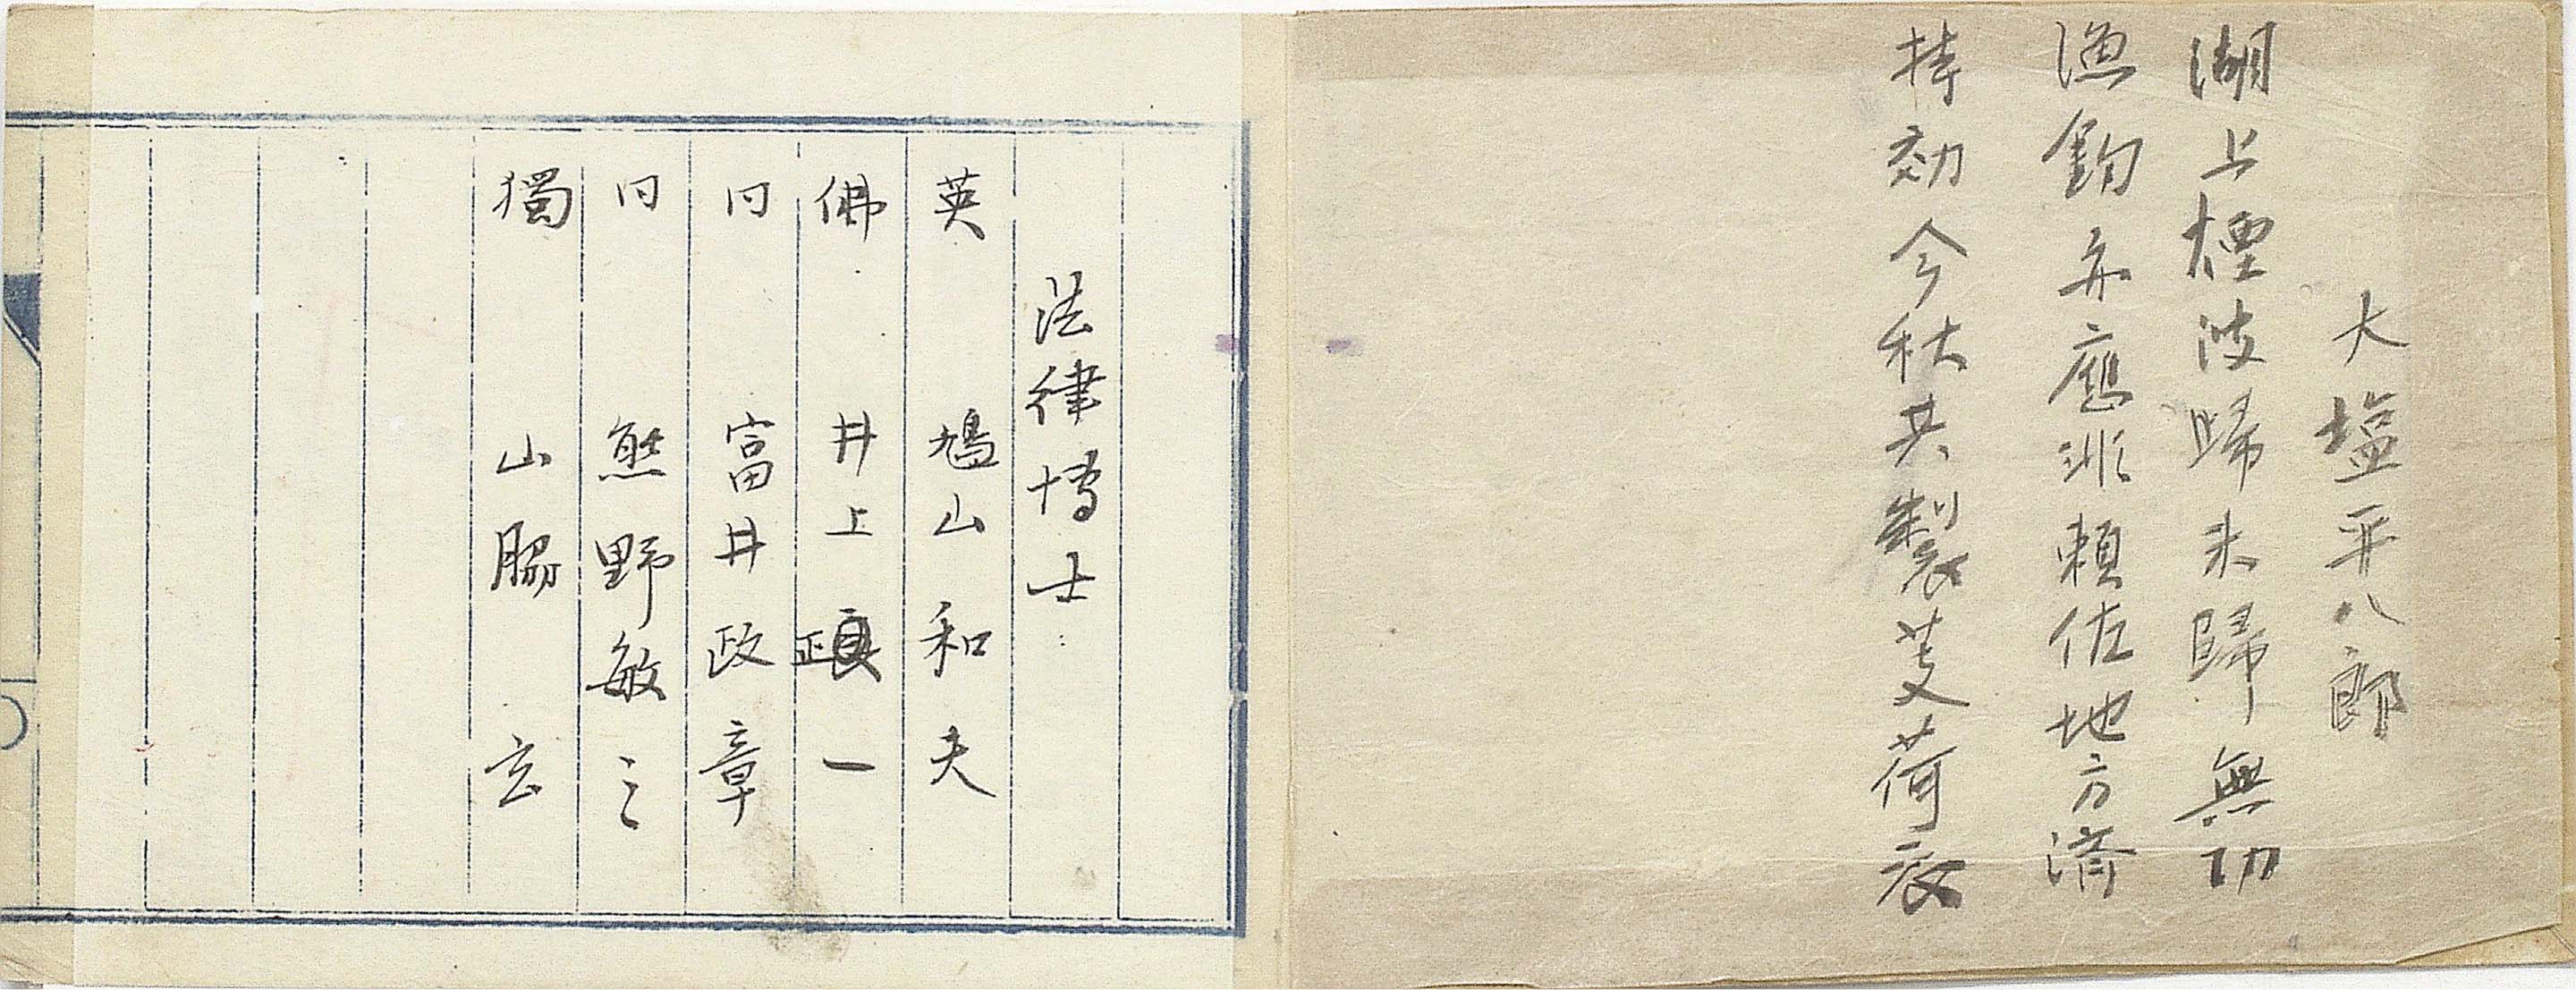 大塩平八郎
湖上煙波歸未歸無功
漁釣亦應非頼佐地方済
持効今秋共製芰荷衣
法律博士
英 鳩山和夫
佛 井上正一
同 富井政章
同 熊野敏三
獨 山脇玄